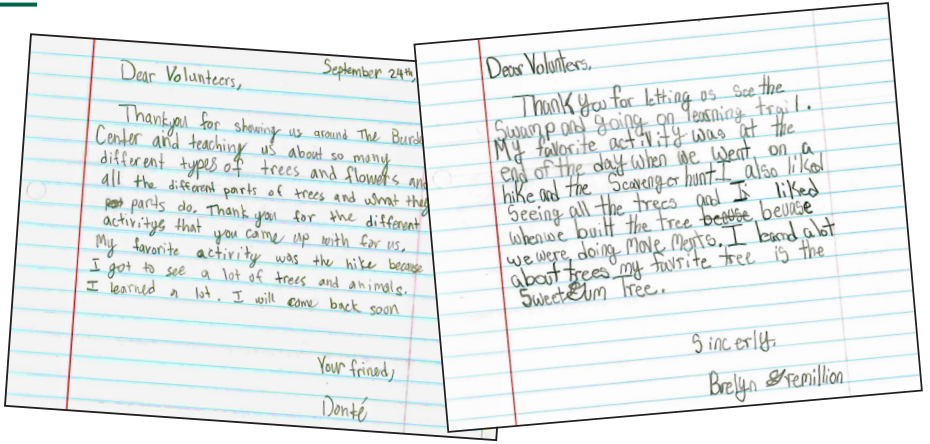 September 24th,
Dear Volunteers,
Thankyou for showing us around The Burd
Center and teaching us about so many
different types of trees and flowers and
all the different parts of trees and what they
parts do. Thank you for the different
activitys that you came up with for us.
My favorite activity was the hike because
I got to see a lot of trees and animals.
I learned a lot. I will come back soon
Your frined,
Donté
Dear Volunters,
Thank you for letting us see the
Swamp and going on learning trail.
My favorite activity was at the
end of the day when we went on a
hike and the Scavenger hunt. I also liked
Seeing all the trees and I liked
when we built the tree becuse beuase
we were doing move ments. I leand a lot
about trees. my favrite tree is the
Sweet Gum Tree.
Sincerly,
Brelyn Gremillion